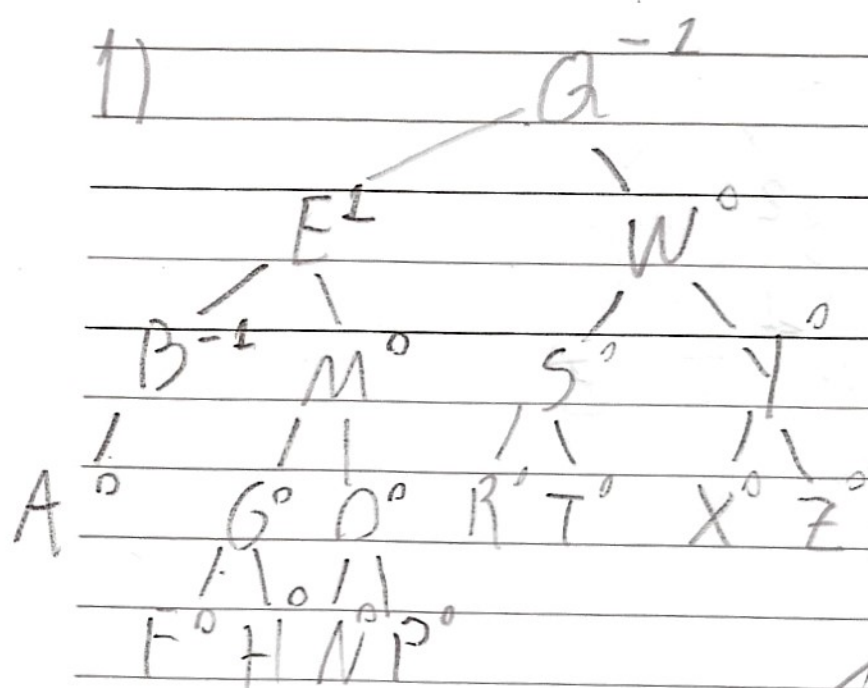 1) Q -1
E 1 W 0
B -1 M 0 S 0 Y 0
A 0 G 0 O 0 R 0 T 0 X 0 Z 0
F 0 H 0 N 0 P 0